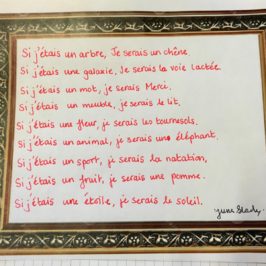 Si j'étais un arbre, Je serais un chêne
Si j'étais une galaxie, Je serais la voie lactée.
Si j'étais un mot, je serais Merci.
Si j'étais un meuble, je serais le lit,
Si j'étais une fleur, je serais les tournesols.
Si j'étais un animal, je serais un éléphant.
Si j'étais un sport, je serais la natation,
Si j'étais un fruit, je serais une pomme.
Si j'étais une étoile, je serais le soleil.